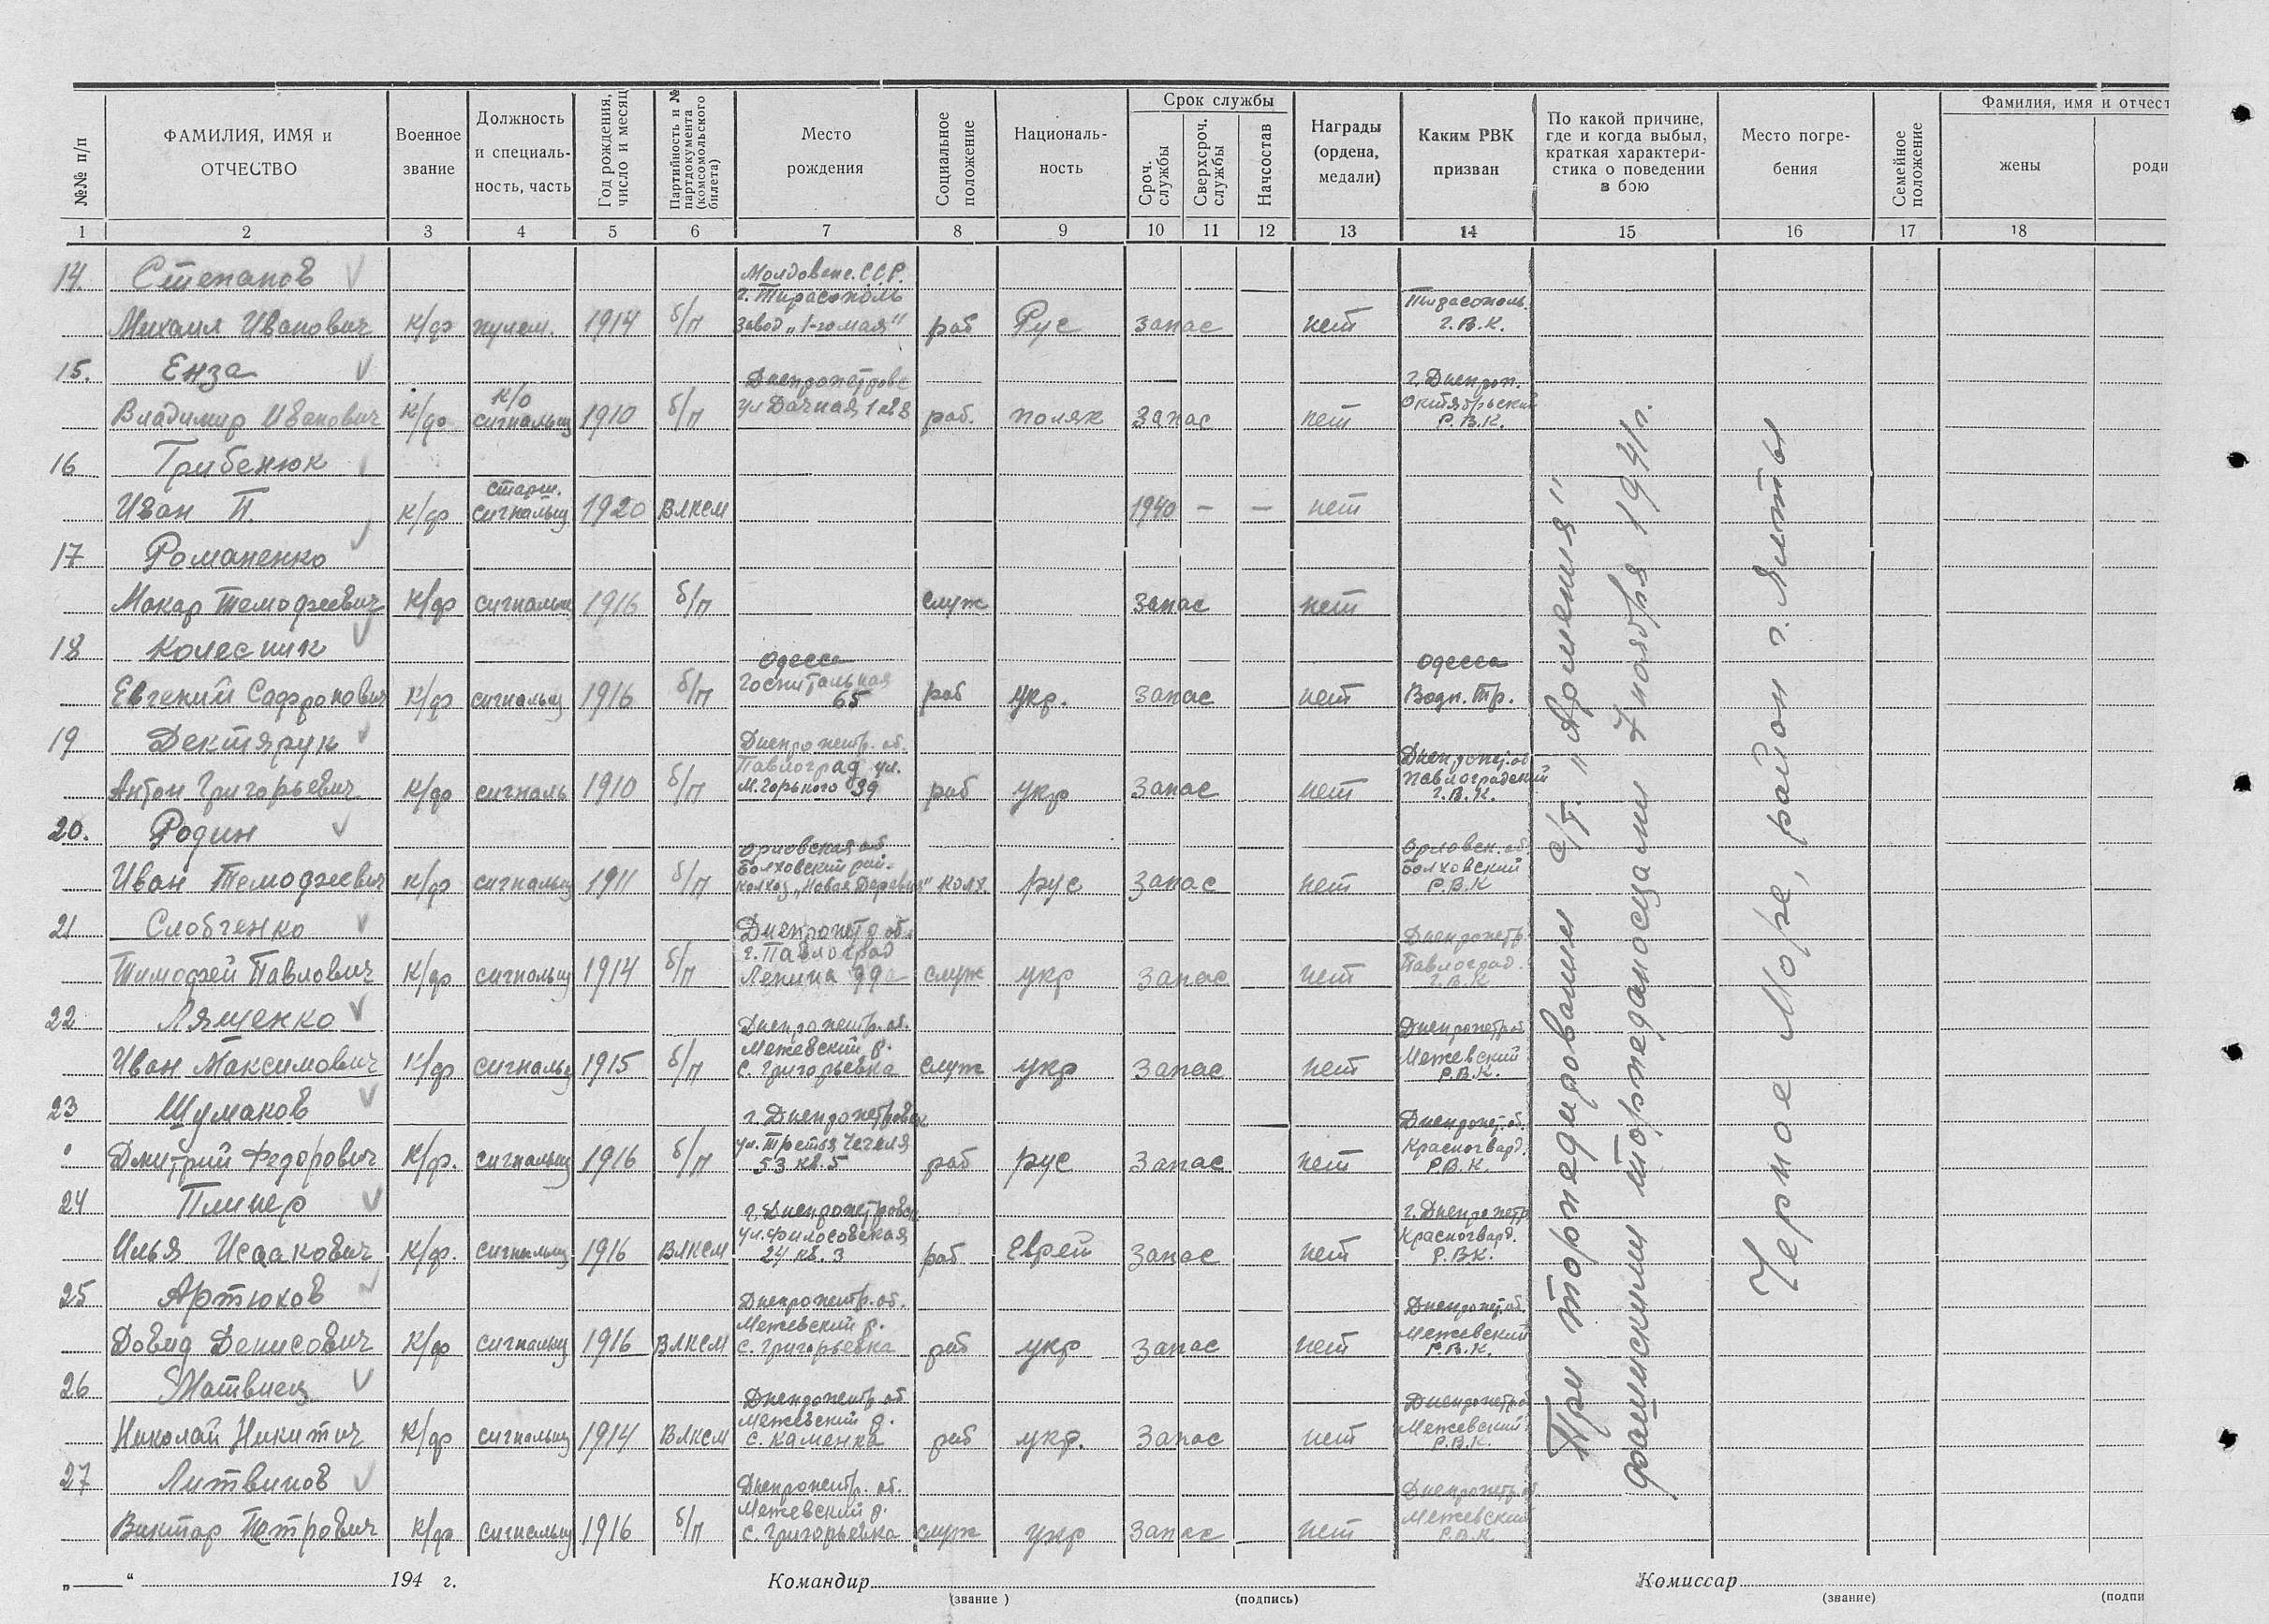 №№ п/п
ФАМИЛИЯ, ИМЯ и ОТЧЕСТВО
Военное звание
Должность и специаль-ность, часть
Год рождения, число и месяц
Партийность и № партдокумента (комсомольского билета)
Место рождения
Социальное положение
Националь-ность
Срок службы
Сроч. службы
Сверхсроч. службы
Начсостав
Награды (ордена, медали)
Каким РВК призван
По какой причине, где и когда выбыл, краткая характери-стика о поведении в бою
Место погре-бения
Семейное положение
Фамилия, имя и отчест
жены
роди
1 2 3 4 5 6 7 8 9 10 11 12 13 14 15 16 17 18
14. Степанов Молдовск. С.С.Р.
г. Тирасполь Тирасполь.
Михаил Иванович к/ф пулем. 1914 б/п завод „1-го мая" раб Рус запас нет г.В.К.
15. Енза Днепропетровс г. Днепроп.
к/о Октябрьский
Владимир Иванович к/ф сигнальщ 1910 б/п ул Дачная 1 раб. поляк запас нет Р.В.К.
16 Грибенюк
старш.
Иван П. к/ф сигнальщ 1920 ВЛКСМ 1940 — — нет
17 Романенко
Макар Темофеевич к/ф сигнальщ 1916 б/п служ запас нет
18 Колесник Одесса Одесса
Госпитальная
Евгений Сафронович к/ф сигнальщ 1916 б/п 65 раб укр. запас нет Водн. Тр.
19 Дектярук Днепропетр. об. Днепропет. об
Павлоград ул. Павлоградский
Антон Григорьевич к/ф сигналь 1910 б/п М. Горького 39 раб укр запас нет г.В.К.
20. Родин Орловская об Орловск. об.
Болховский рай. Болховский
Иван Темофеевич к/ф сигнальщ 1911 б/п колхоз „Новая Деревня" колх. рус запас нет Р.В.К
21 Слобченко Днепропетр об. Днепропетр.
г. Павлоград Павлоград.
Тимофей Павлович к/ф сигнальщ 1914 б/п Ленина 99а служ укр запас нет г.В.К
22 Лященко Днепропетр. об. Днепропетр об
Межевский р. Межевский
Иван Максимович к/ф сигнальщ 1915 б/п с. Григорьевка служ укр запас нет Р.В.К.
23 Шумаков г. Днепропетровск Днепропет. об.
ул. Третья Чечеля Красногвард.
Дмитрий Федорович к/ф. сигнальщ 1916 б/п 53 кв. 5 раб рус запас нет Р.В.К.
24 Плинер г. Днепропетровск г. Днепропетр
ул. Философская Красногвард.
Илья Исаакович к/ф. сигнальщ 1916 ВЛКСМ 24 кв. 3 раб. Еврей запас нет Р.ВК.
25 Артюхов Днепропетр. об. Днепропет. об.
Межевский р. Межевский
Довид Денисович к/ф сигнальщ 1916 ВЛКСМ с. Григорьевка раб укр запас нет Р.В.К.
26 Матвиец Днепропетр об Днепропетр об
Межевский р. Межевский
Николай Никитич к/ф сигнальщ 1914 ВЛКСМ с. Каменка раб укр. запас нет Р.В.К.
27 Литвинов Днепропетр. об. Днепропетр. об
Межевский р. Межевский
Виктор Петрович к/ф сигнальщ 1916 б/п с. Григорьевка служ укр запас нет Р.В.К
При торпедировании с/т. „Армения"
фашискими торпедоносцами 7 ноября 1941г.
Черное Море, район г. Ялты
„——" 194 г. Командир Комиссар
(звание) (подпись) (звание) (подпи